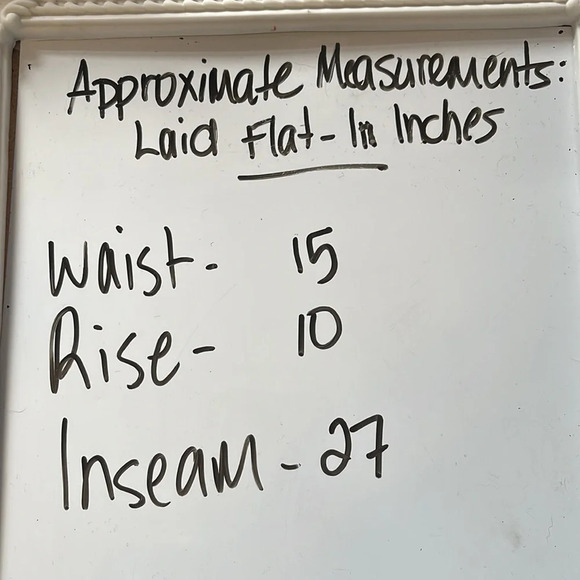 Approximate Measurements:
Laid Flat - In Inches
Waist - 15
Rise - 10
Inseam - 27